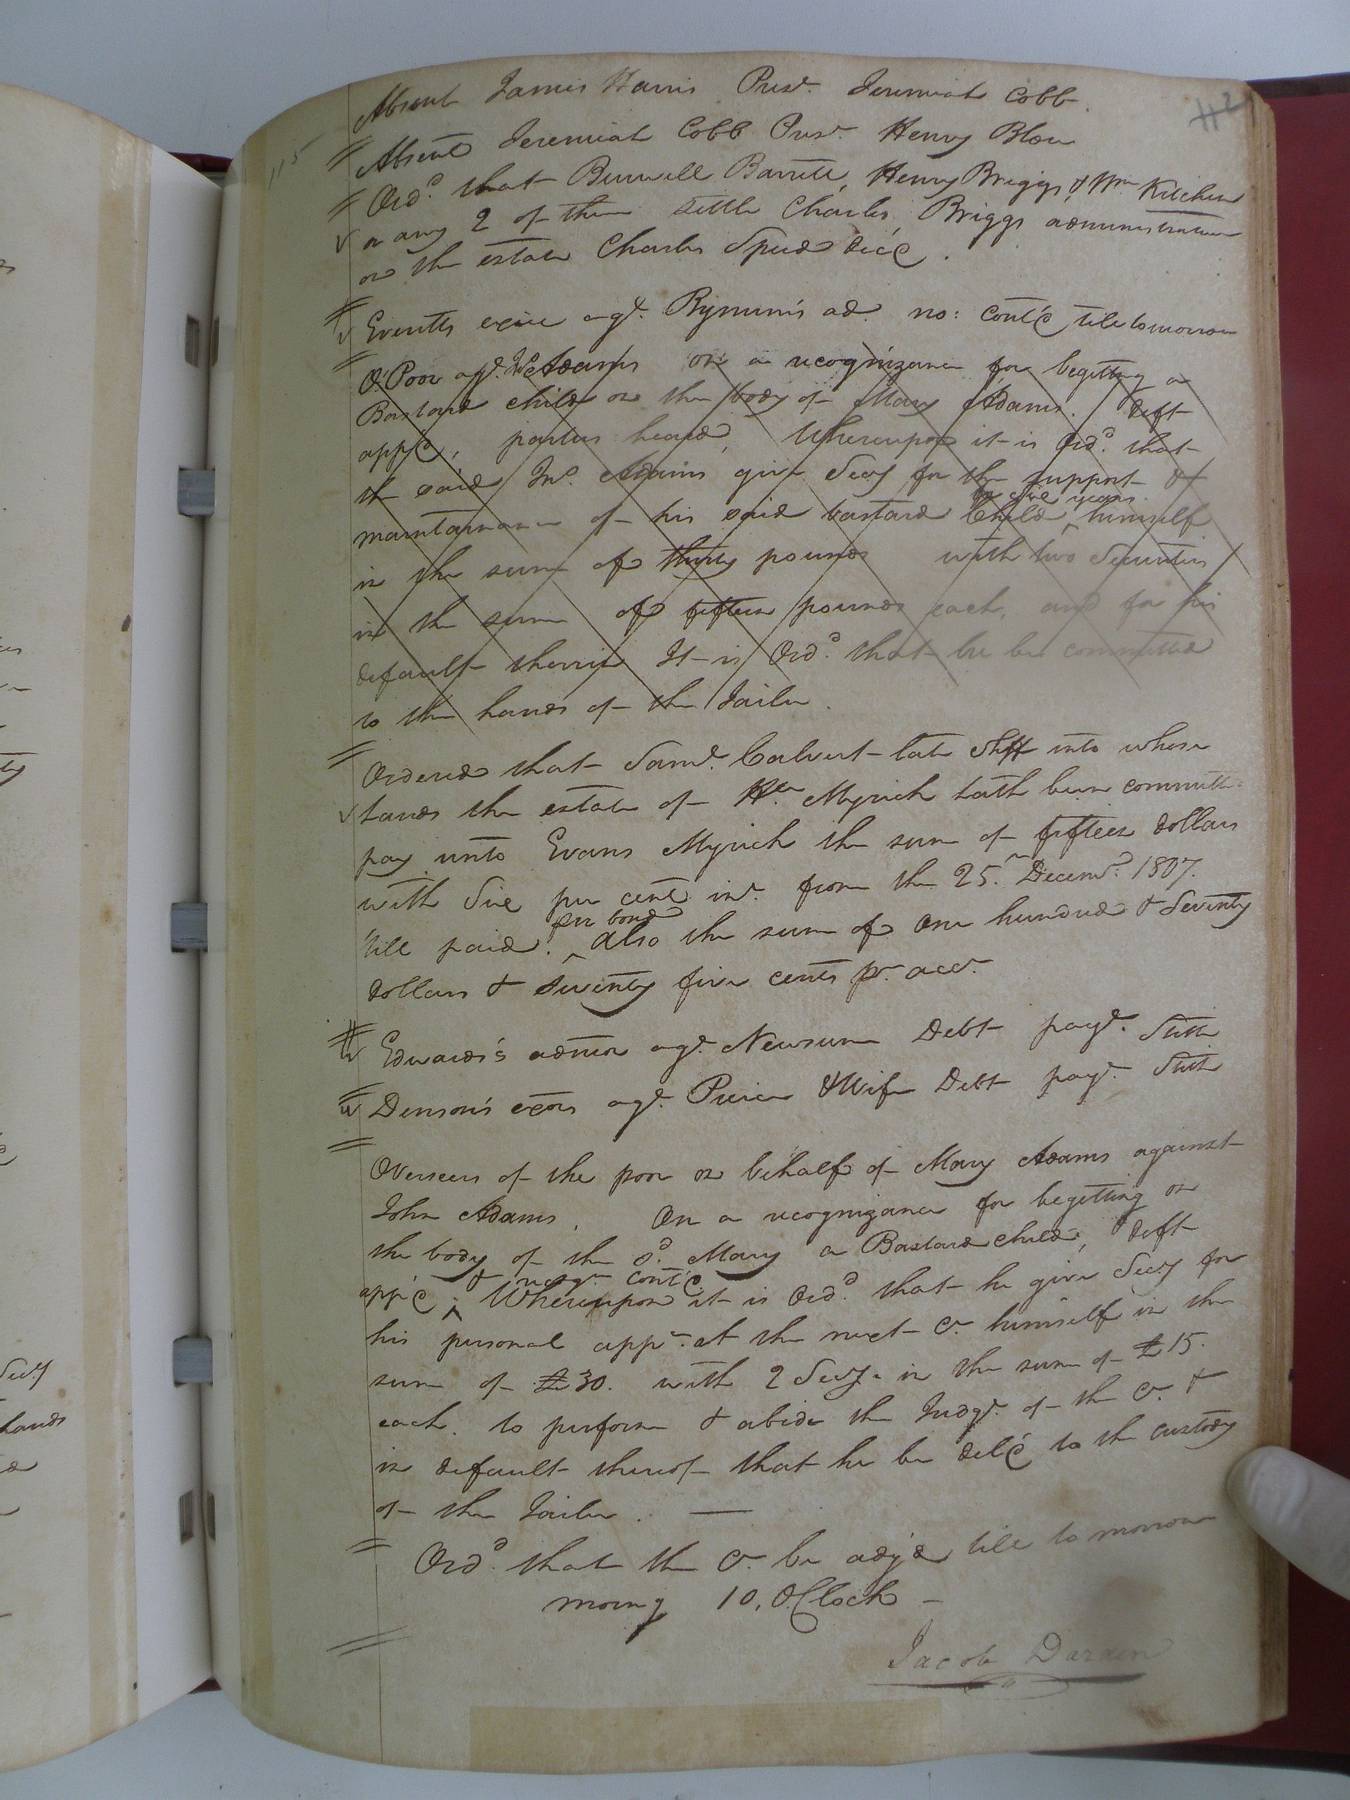 Absent James Harris Prest. Jeremiah Cobb.
115
Absent Jeremiah Cobb Prest. Henry Blow
Ord. that Burwell Barrett, Henry Briggs, & Wm Kitchen
or any 2 of them settle Charles Briggs administration
on the estate Charles Speed dec'd.
exix agt. Bynum's ad. no: cont'd till tomorrow
O Poor agt. Jno Adams on a recognizance for begetting a
Bastard child on the body of Mary Adams. Deft
app'd, parties heard, Whereupon it is Ord. that
the said Jno. Adams give Secy for the support &
for five years
maintainance of his said bastard Child ^ himself
in the sum of thirty pounds with two Securities
in the sum of fifteen pounds each, and for his
default therein It is Ord. that he be committed
to the hands of the Jailer.
Ordered that Saml. Calvert late Shff into whose
hands the estate of Myrick hath been committ
pay unto Evans Myrick the sum of fifteen dollars
with Six per cent int. from the 25. Decemr. 1807.
per bond
'till paid. ^ Also the sum of One hundred & Seventy
dollars & Seventy five cents pr. acct.
Edwards's admor agt. Newsum Debt payt.
Denson's exors agt. & Wife Debt payt.
Overseers of the poor on behalf of Mary Adams against
John Adams. On a recognizance for begetting on
the body of the sd. Mary a Bastard child, deft
& recogn. cont'd.
app'd ^. Whereupon it is Ord. that he give Secy for
his personal appe. at the next Ct. himself in the
sum of £30. with 2 Secys. in the sum of £15.
each. to perform & abide the Judgt. of the Ct. &
in default thereof that he be del'd to the custody
of the Jailer. —
Ord. that the Ct. be adj'd till to morrow
morng 10, O.Clock —
Jacob Darden